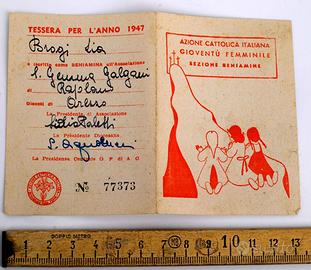 TESSERA PER L'ANNO 1947
Brogi Lia
è iscritta come BENIAMINA all'Associazione
S. Gemma Galgani
di Rapolano
Diocesi di Arezzo
La Presidente di Associazione
La Presidente Diocesana
La Presidenza Centrale G. F. di A. C.
№ 77373
AZIONE CATTOLICA ITALIANA
GIOVENTÙ FEMMINILE
SEZIONE BENIAMINE
DOPPIO METRO
1 2 3 4 5 6 7 8 9 10 11 12 13